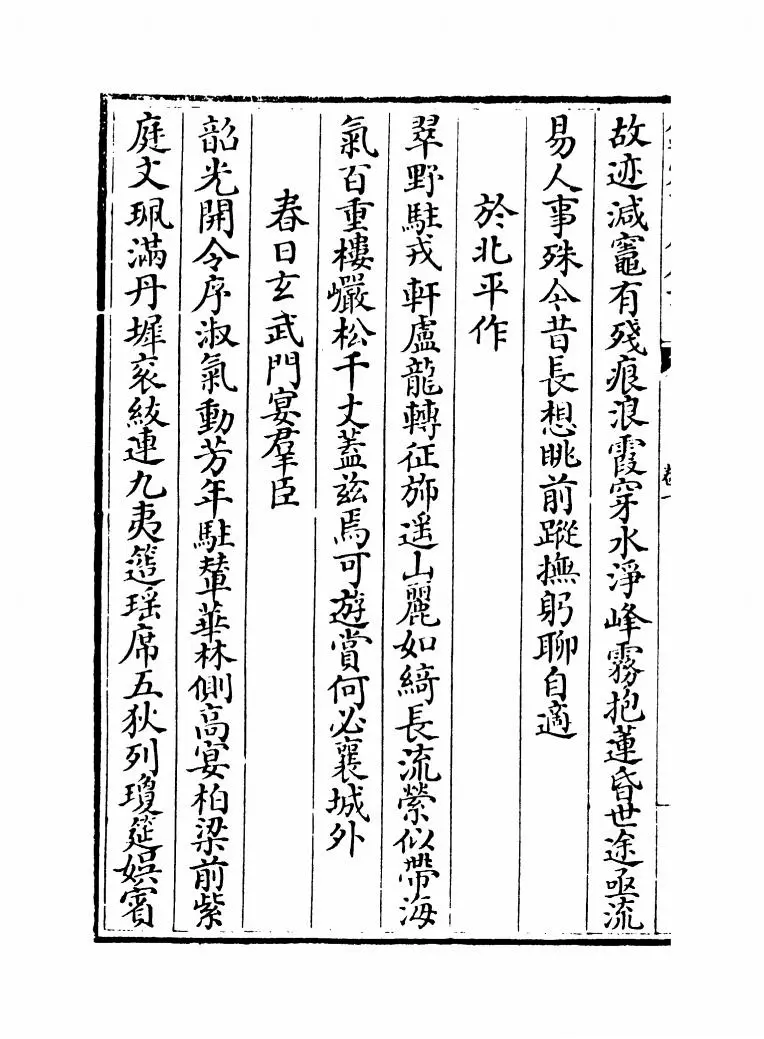 故迹減竈有殘痕浪霞穿水淨峰霧抱蓮昏世途亟流
易人事殊今昔長想眺前蹤撫躬聊自適
於北平作
翠野駐戎軒盧龍轉征斾遥山麗如綺長流縈似帶海
氣百重樓巖松千丈蓋兹焉可遊賞何必襄城外
春日玄武門宴羣臣
韶光開令序淑氣動芳年駐輦華林側高宴柏梁前紫
庭文珮滿丹墀衮紱連九夷簉瑶席五狄列瓊筵娯賓